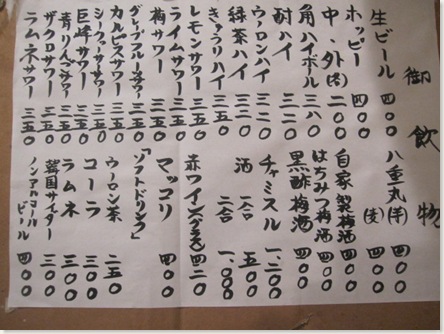 御飲物
生ビール 四〇〇
ホッピー 四〇〇
中、外(各) 二〇〇
角ハイボール 三八〇
酎ハイ 三二〇
ウーロンハイ 三二〇
緑茶ハイ 三二〇
きゅうりハイ 三五〇
レモンサワー 三五〇
ライムサワー 三五〇
梅サワー 三五〇
グレープフルーツサワー 三五〇
カルピスサワー 三五〇
シークヮーサーサワー 三五〇
巨峰サワー 三五〇
青りんごサワー 三五〇
ザクロサワー 三五〇
ラムネサワー 三五〇
八重丸(芋) 四〇〇
(麦) 四〇〇
自家製梅酒 四〇〇
はちみつ梅酒 四〇〇
黒酢梅酒 四〇〇
チャミスル 一、二〇〇
酒 一合 五〇〇
二合 一、〇〇〇
赤ワイン(グラス) 四二〇
マッコリ 四〇〇
「ソフトドリンク」
ウーロン茶 二五〇
コーラ 三〇〇
ラムネ 三〇〇
韓国サイダー 三〇〇
ノンアルコールビール 四〇〇